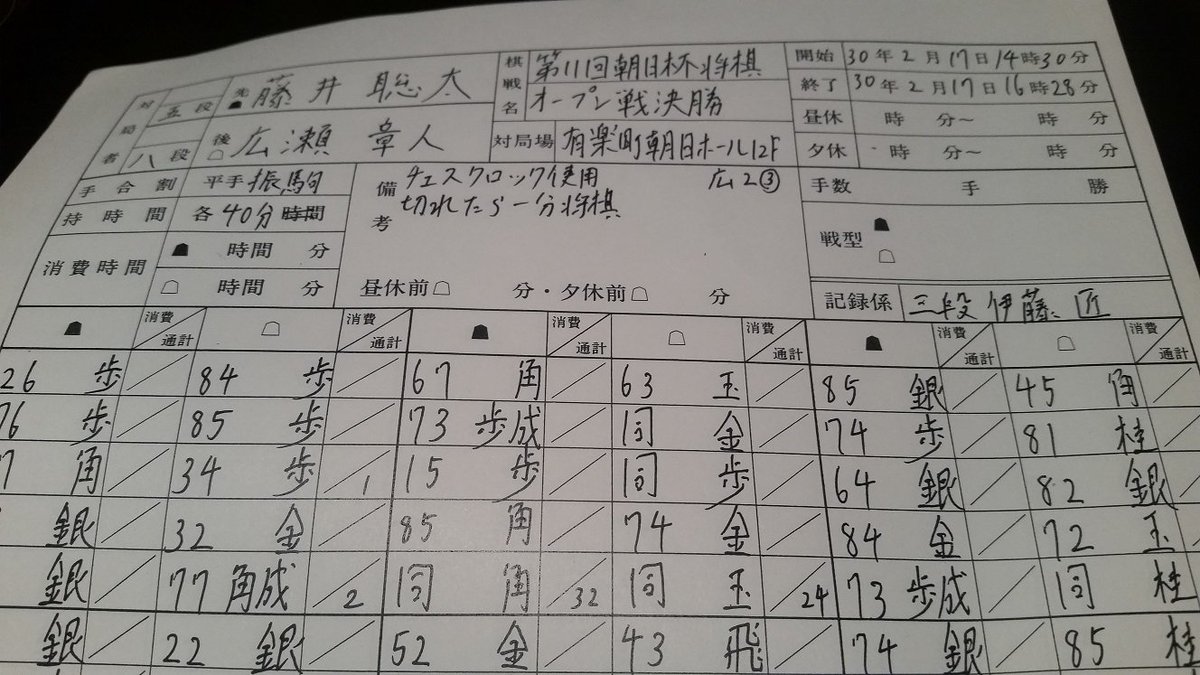 対局者 五段 先 藤井聡太
八段 後 広瀬章人
棋戦名 第111回朝日杯将棋
オープン戦決勝
対局場 有楽町朝日ホール12F
開始 30年2月17日14時30分
終了 30年2月17日16時28分
昼休 時 分〜 時 分
夕休 時 分〜 時 分
手合割 平手 振駒
持時間 各40分時間
消費時間 ☗ 時間 分
☖ 時間 分
備考 チェスクロック使用 広2③
切れたら一分将棋
昼休前☖ 分・夕休前☖ 分
手数 手 勝
戦型 ☗
☖
記録係 三段 伊藤匠
☗ 消費/通計 ☖ 消費/通計 ☗ 消費/通計 ☖ 消費/通計 ☗ 消費/通計 ☖ 消費/通計
26 歩 84 歩 67 角 63 玉 85 銀 45 角
76 歩 85 歩 73 歩成 同 金 74 歩 81 桂
7 角 34 歩 1 15 歩 同 歩 64 銀 82 銀
銀 32 金 85 角 74 金 84 金 72 玉
銀 77 角成 2 同 角 32 同 玉 24 73 歩成 同 桂
銀 22 銀 52 金 43 飛 74 銀 85 桂